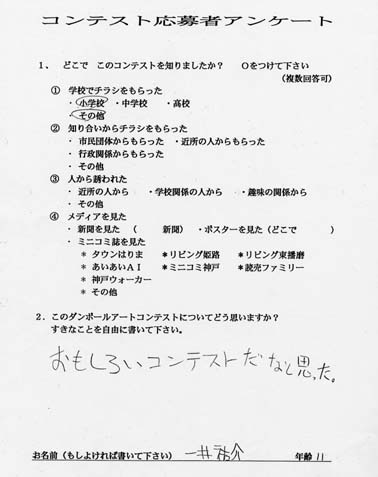 コンテスト応募者アンケート
１、どこで このコンテストを知りましたか？ ○をつけて下さい
（複数回答可）
① 学校でチラシをもらった
・小学校 ・中学校 ・高校
・その他
② 知り合いからチラシをもらった
・市民団体からもらった ・近所の人からもらった
・行政関係からもらった
・その他
③ 人から誘われた
・近所の人から ・学校関係の人から ・趣味の関係から
・その他
④ メディアを見た
・新聞を見た （ 新聞） ・ポスターを見た（どこで ）
・ミニコミ誌を見た
＊ タウンはりま ＊リビング姫路 ＊リビング東播磨
＊ あいあいＡＩ ＊ミニコミ神戸 ＊読売ファミリー
＊ 神戸ウォーカー
＊ その他
２．このダンボールアートコンテストについてどう思いますか？
すきなことを自由に書いて下さい。
おもしろいコンテストだなと思った。
お名前（もしよければ書いて下さい） 一井祐介 年齢 11